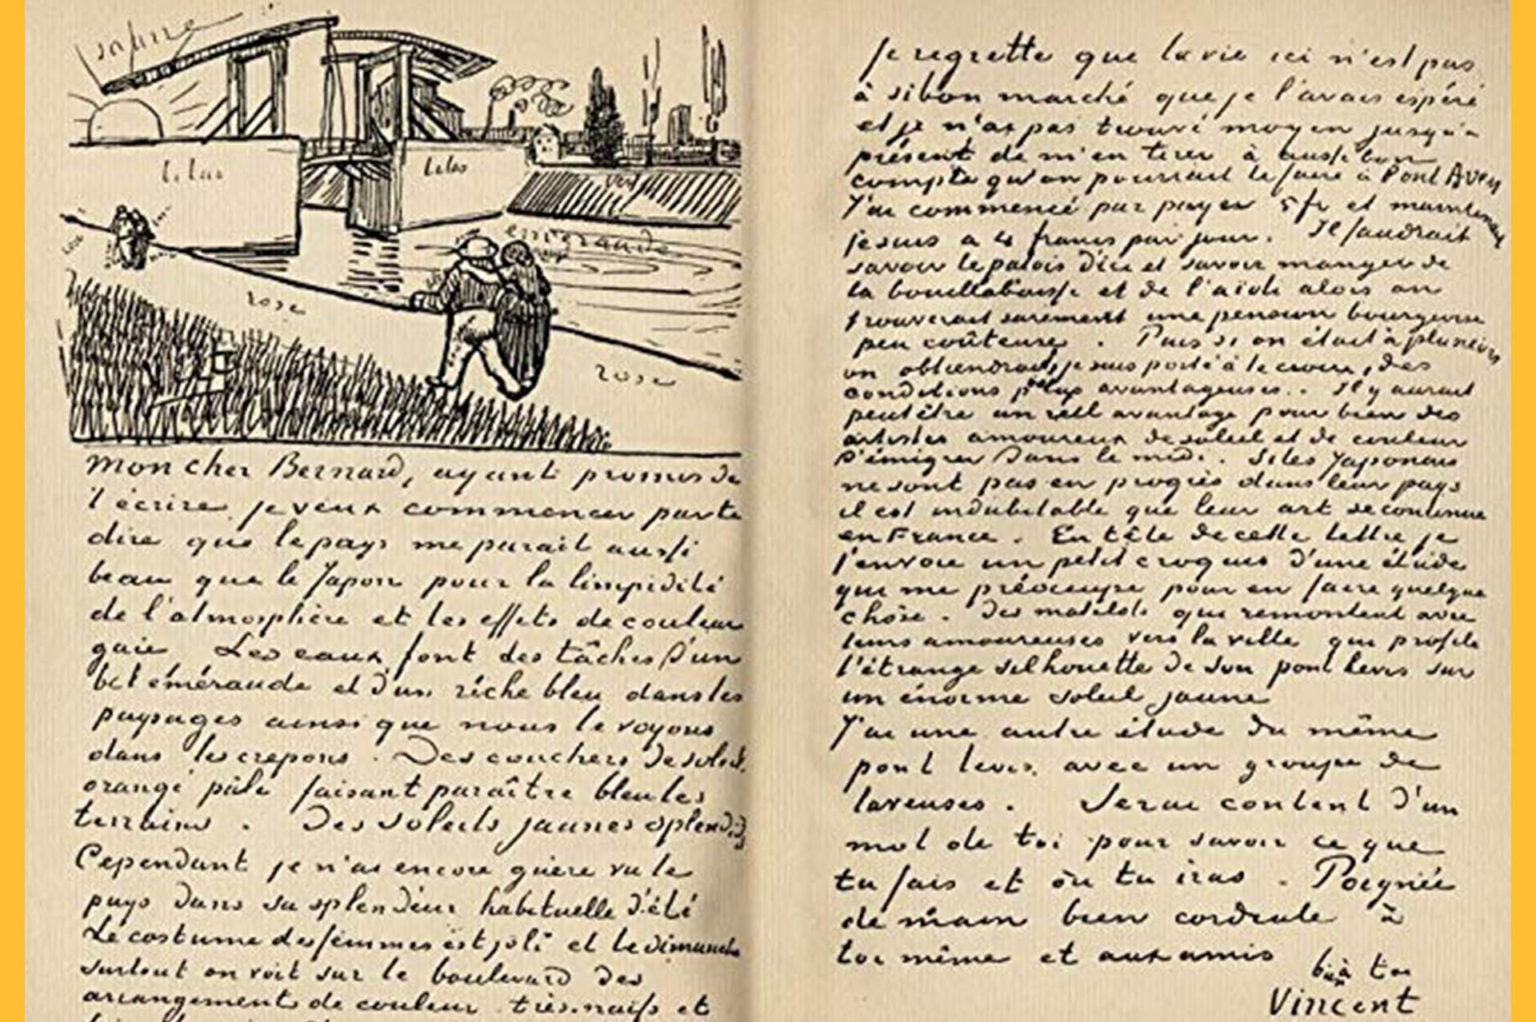 jaune
lilas
lilas
vert
emeraude
rose
rose
Mon cher Bernard, ayant promis de
t'écrire je veux commencer par te
dire que le pays me parait aussi
beau que le Japon pour la limpidité
de l'atmosphère et les effets de couleur
gaie Les eaux font des tâches d'un
bel éméraude et d'un riche bleu dans les
paysages ainsi que nous le voyons
dans les crepons. Des couchers de soleil
orangé pâle faisant paraître bleu les
terrains. Des soleils jaunes splendides
Cependant je n'ai encore guère vu le
pays dans sa splendeur habituelle d'été
Le costume des femmes est joli et le dimanche
surtout on voit sur le boulevard des
arrangements de couleur très naifs et
Je regrette que la vie ici n'est pas
à si bon marché que je l'avais espéré
et je n'ai pas trouvé moyen jusqu'à
présent de m'en tirer à aussi bon
compte qu'on pourrait le faire à Pont Aven
J'ai commencé par payer 5 fr et maintenant
je suis à 4 francs par jour. Il faudrait
savoir le patois d'ici et savoir manger de
la bouillabaisse et de l'aïoli alors on
trouverait surement une pension bourgeoise
peu coûteuse. Puis si on était à plusieurs
on obtiendrait, je suis porté à le croire, des
conditions plus avantageuses. Il y aurait
peutêtre un réel avantage pour bien des
artistes amoureux de soleil et de couleur
d'émigrer dans le midi. Si les Japonais
ne sont pas en progrès dans leur pays
il est indubitable que leur art se continue
en France. En tête de cette lettre je
t'envoie un petit croquis d'une étude
qui me préoccupe pour en faire quelque
chôse. Des matelots qui remontent avec
leurs amoureuses vers la ville qui profile
l'étrange silhouette de son pont levis sur
un énorme soleil jaune
J'ai une autre étude du même
pont levis avec un groupe de
laveuses. Serai content d'un
mot de toi pour savoir ce que
tu fais et où tu iras. Poignée
de main bien cordiale à
toi même et aux amis
à toi
Vincent